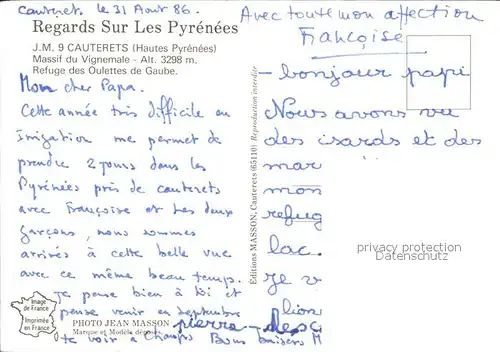 Cauterets le 31 Aout 86.
Regards Sur Les Pyrénées
J.M. 9 CAUTERETS (Hautes Pyrénées)
Massif du Vignemale - Alt. 3298 m.
Refuge des Oulettes de Gaube.
Mon cher Papa.
Cette année très difficile en
irrigation me permet de
prendre 2 jours dans les
Pyrénées près de cauterets
avec Françoise et les deux
garçons, nous sommes
arrivés à cette belle vue
avec ce même beau temps.
Je pense bien à toi et
pense venir en septembre
te voir à Bons baisers
Image
de France
Imprimée
en France
PHOTO JEAN MASSON
Marque et Modèle déposés
Editions MASSON, Cauterets (65110) Reproduction interdite
Avec toute mon affection
Françoise
- bonjour papi
Nous avons vu
des isards et des
mar
mon
refug
lac.
Je v
lion
pierre-
privacy protection
Datenschutz